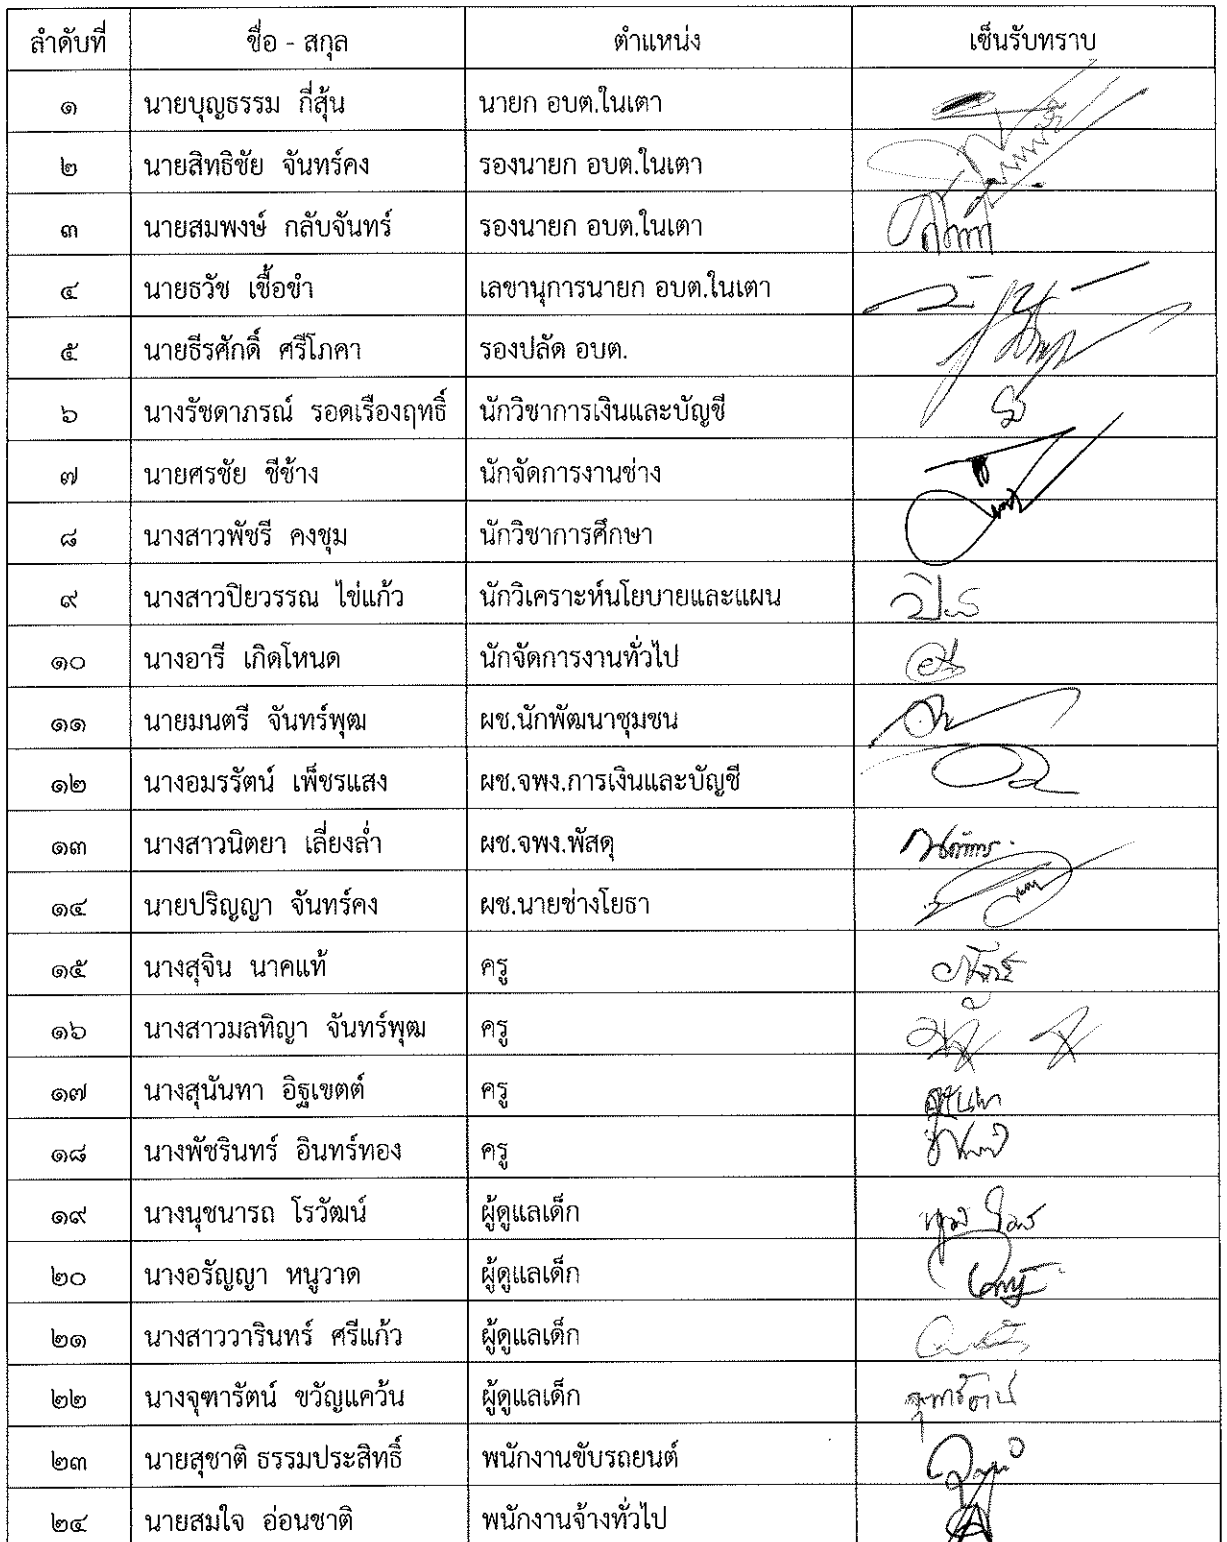 ลำดับที่ ชื่อ - สกุล ตำแหน่ง เซ็นรับทราบ
๑ นายบุญธรรม กี่สุ้น นายก อบต.ในเตา
๒ นายสิทธิชัย จันทร์คง รองนายก อบต.ในเตา
๓ นายสมพงษ์ กลับจันทร์ รองนายก อบต.ในเตา
๔ นายธวัช เชื้อขำ เลขานุการนายก อบต.ในเตา
๕ นายธีรศักดิ์ ศรีโภคา รองปลัด อบต.
๖ นางรัชดาภรณ์ รอดเรืองฤทธิ์ นักวิชาการเงินและบัญชี
๗ นายศรชัย ชีช้าง นักจัดการงานช่าง
๘ นางสาวพัชรี คงชุม นักวิชาการศึกษา
๙ นางสาวปิยวรรณ ไข่แก้ว นักวิเคราะห์นโยบายและแผน
๑๐ นางอารี เกิดโหนด นักจัดการงานทั่วไป
๑๑ นายมนตรี จันทร์พุฒ ผช.นักพัฒนาชุมชน
๑๒ นางอมรรัตน์ เพ็ชรแสง ผช.จพง.การเงินและบัญชี
๑๓ นางสาวนิตยา เลี่ยงล่ำ ผช.จพง.พัสดุ
๑๔ นายปริญญา จันทร์คง ผช.นายช่างโยธา
๑๕ นางสุจิน นาคแท้ ครู
๑๖ นางสาวมลทิญา จันทร์พุฒ ครู
๑๗ นางสุนันทา อิฐเขตต์ ครู สุนันทา
๑๘ นางพัชรินทร์ อินทร์ทอง ครู
๑๙ นางนุชนารถ โรวัฒน์ ผู้ดูแลเด็ก
๒๐ นางอรัญญา หนูวาด ผู้ดูแลเด็ก
๒๑ นางสาววารินทร์ ศรีแก้ว ผู้ดูแลเด็ก
๒๒ นางจุฑารัตน์ ขวัญแคว้น ผู้ดูแลเด็ก จุฑารัตน์
๒๓ นายสุชาติ ธรรมประสิทธิ์ พนักงานขับรถยนต์
๒๔ นายสมใจ อ่อนชาติ พนักงานจ้างทั่วไป